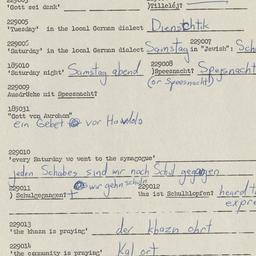 'Gott sei dank'
)Tilleld)?
229005
'Tuesday' in the local German dialect Dienschtik
229006 229007
'Saturday' in the local German dialect Samstag in "Jewish": Sch
185010 229008
'Saturday night' Samstag abend )Speesnacht? Speysnacht
(or Speesnacht)
229009
Ausdrücke mit Speesnacht?
185031
"Gott von Avrohom"
ein Gebet vor Hawdolo
229010
'every Saturday we went to the synagogue'
jeden Schabes sind mr noch Schul gegangen
229011 wir gehn schule 229012
) Schulgegangen? Was ist Schulklopfen? heard t
expre
229013
'the khazn is praying' der khazn ohrt
229014
'the community is praying' Kal ort